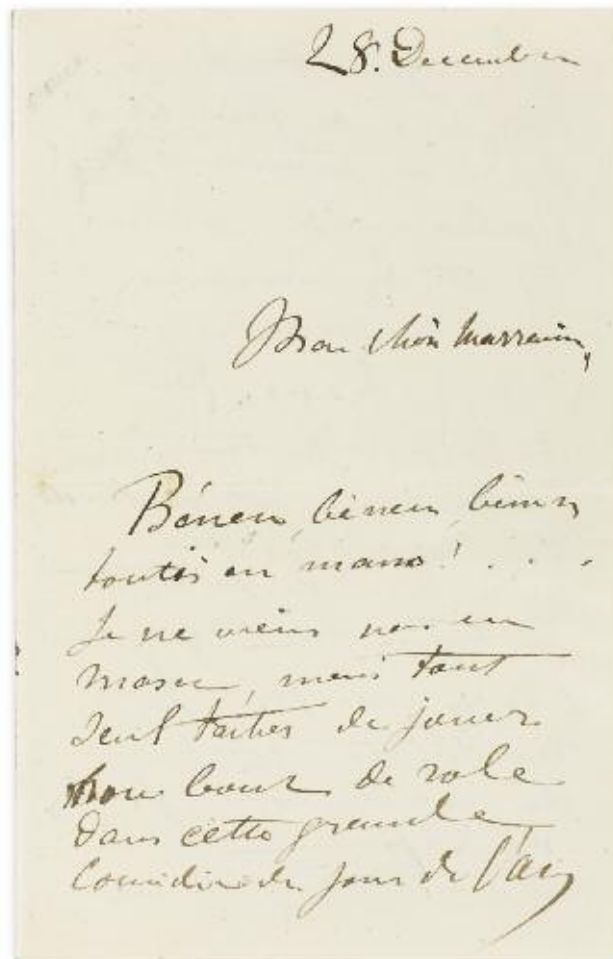 28. Decembre
Mon chèr Marrain,
Bénen, bénen, bénen
toutés en mano! . . .
Je ne viens pas en
masse, mais tout
seul tâcher de jouer
mon bout de role
dans cette grande
Comédie du jour de l'an,